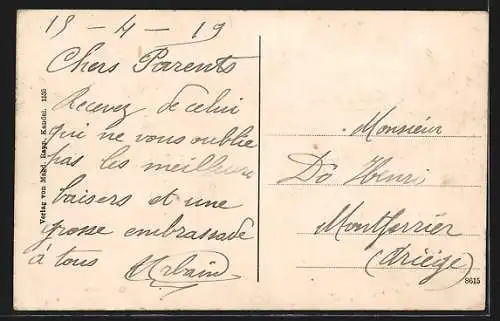 15 - 4 - 19
Chers Parents
Recevez de celui
qui ne vous oublie
pas les meilleurs
baisers et une
grosse embrassade
à tous Urbain
Monsieur
Dô Henri
Montferrier
(Ariège)
8615
Verlag von Rapp, Kandel. 1535